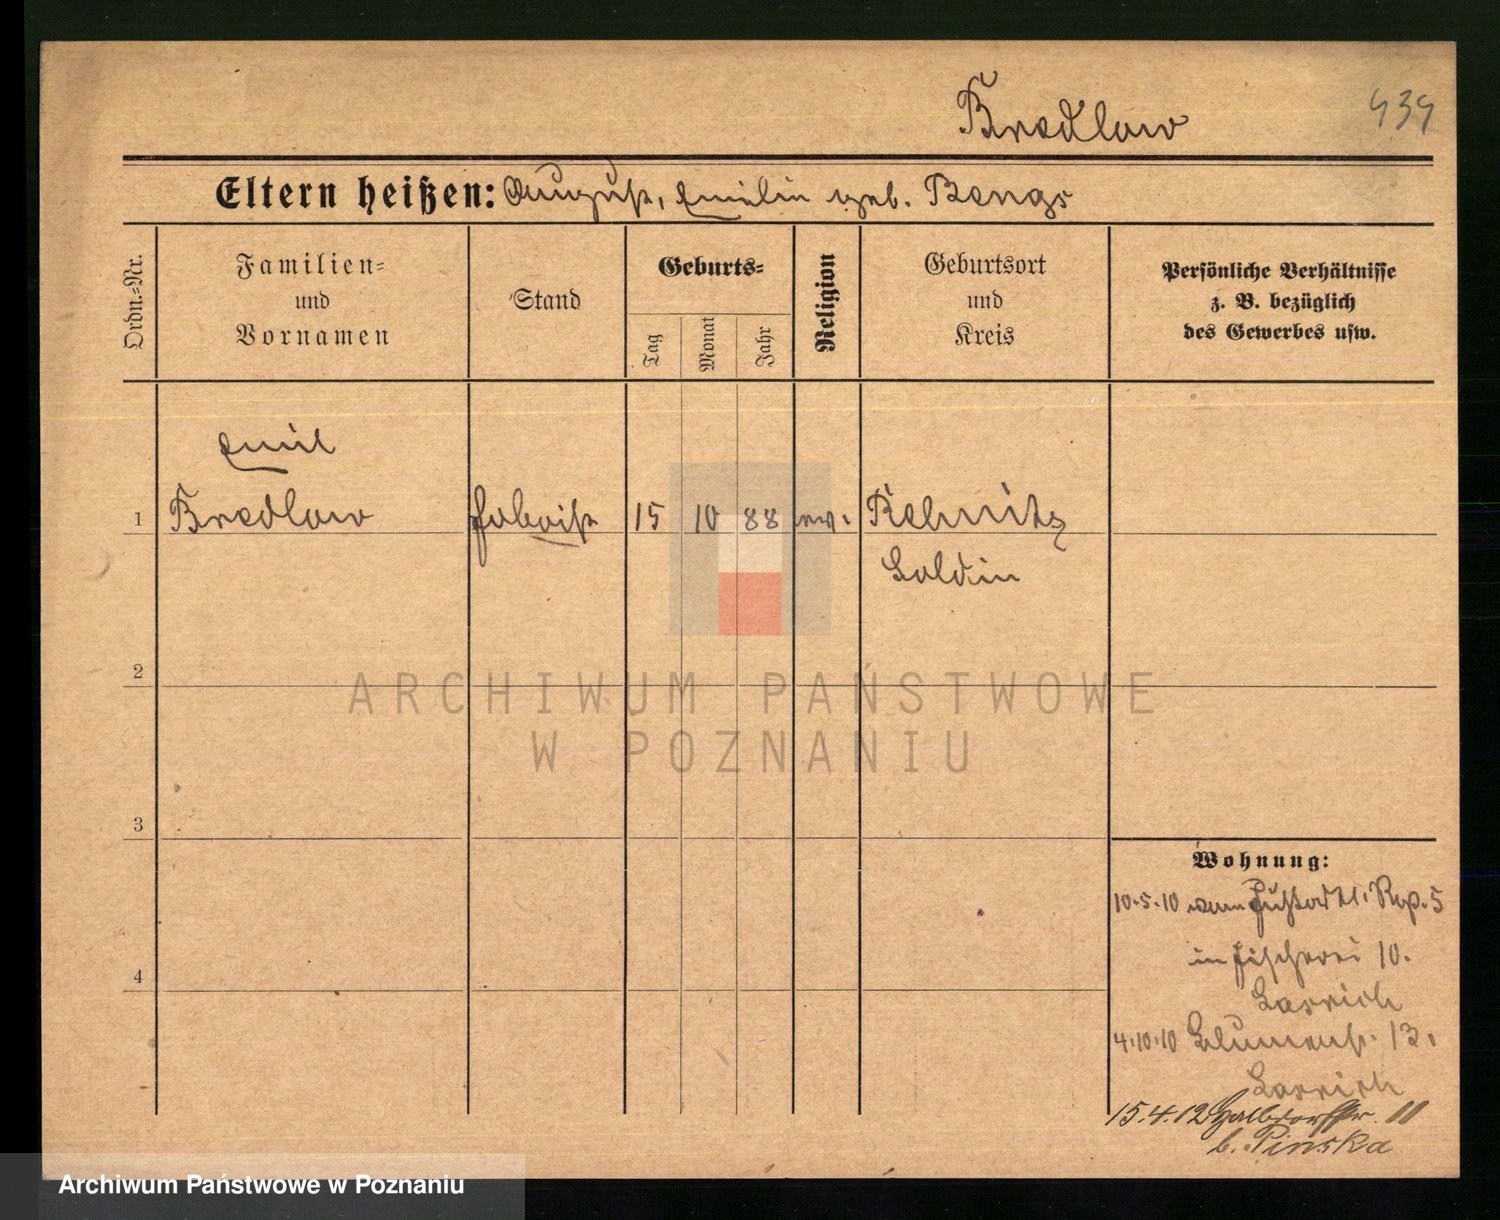 Bredlow
439
Eltern heißen: August, Emilie geb. Bengs
Ordn.-Nr.
Familien-
und
Vornamen
Stand
Geburts-
Tag
Monat
Jahr
Religion
Geburtsort
und
Kreis
Persönliche Verhältnisse
z. B. bezüglich
des Gewerbes usw.
Emil
1 Bredlow 15 10 88 ev. Rehnitz
Soldin
2
3
4
Wohnung:
10.5.10 5
in Fischerei 10.
4.10.10 Blumenst. 13.
15.4.12 Halbdorffstr. 11
b. Pinska
ARCHIWUM PAŃSTWOWE
W POZNANIU
Archiwum Państwowe w Poznaniu